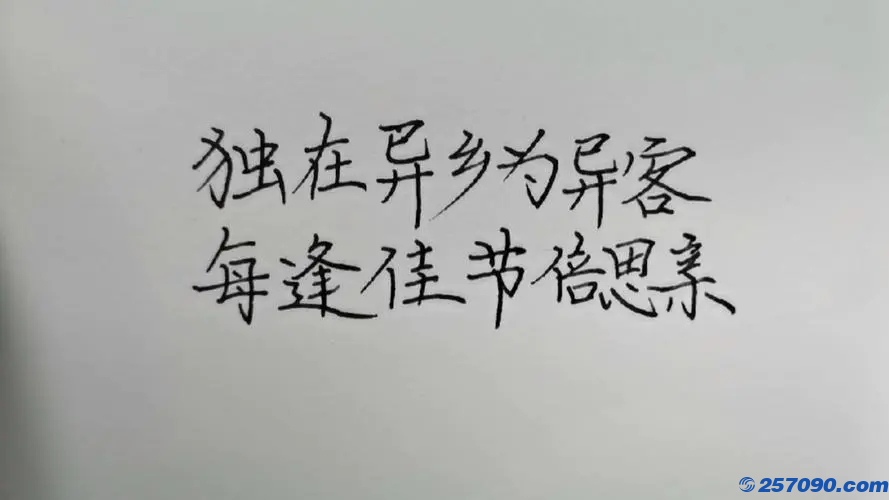 独在异乡为异客
每逢佳节倍思亲
257090.com